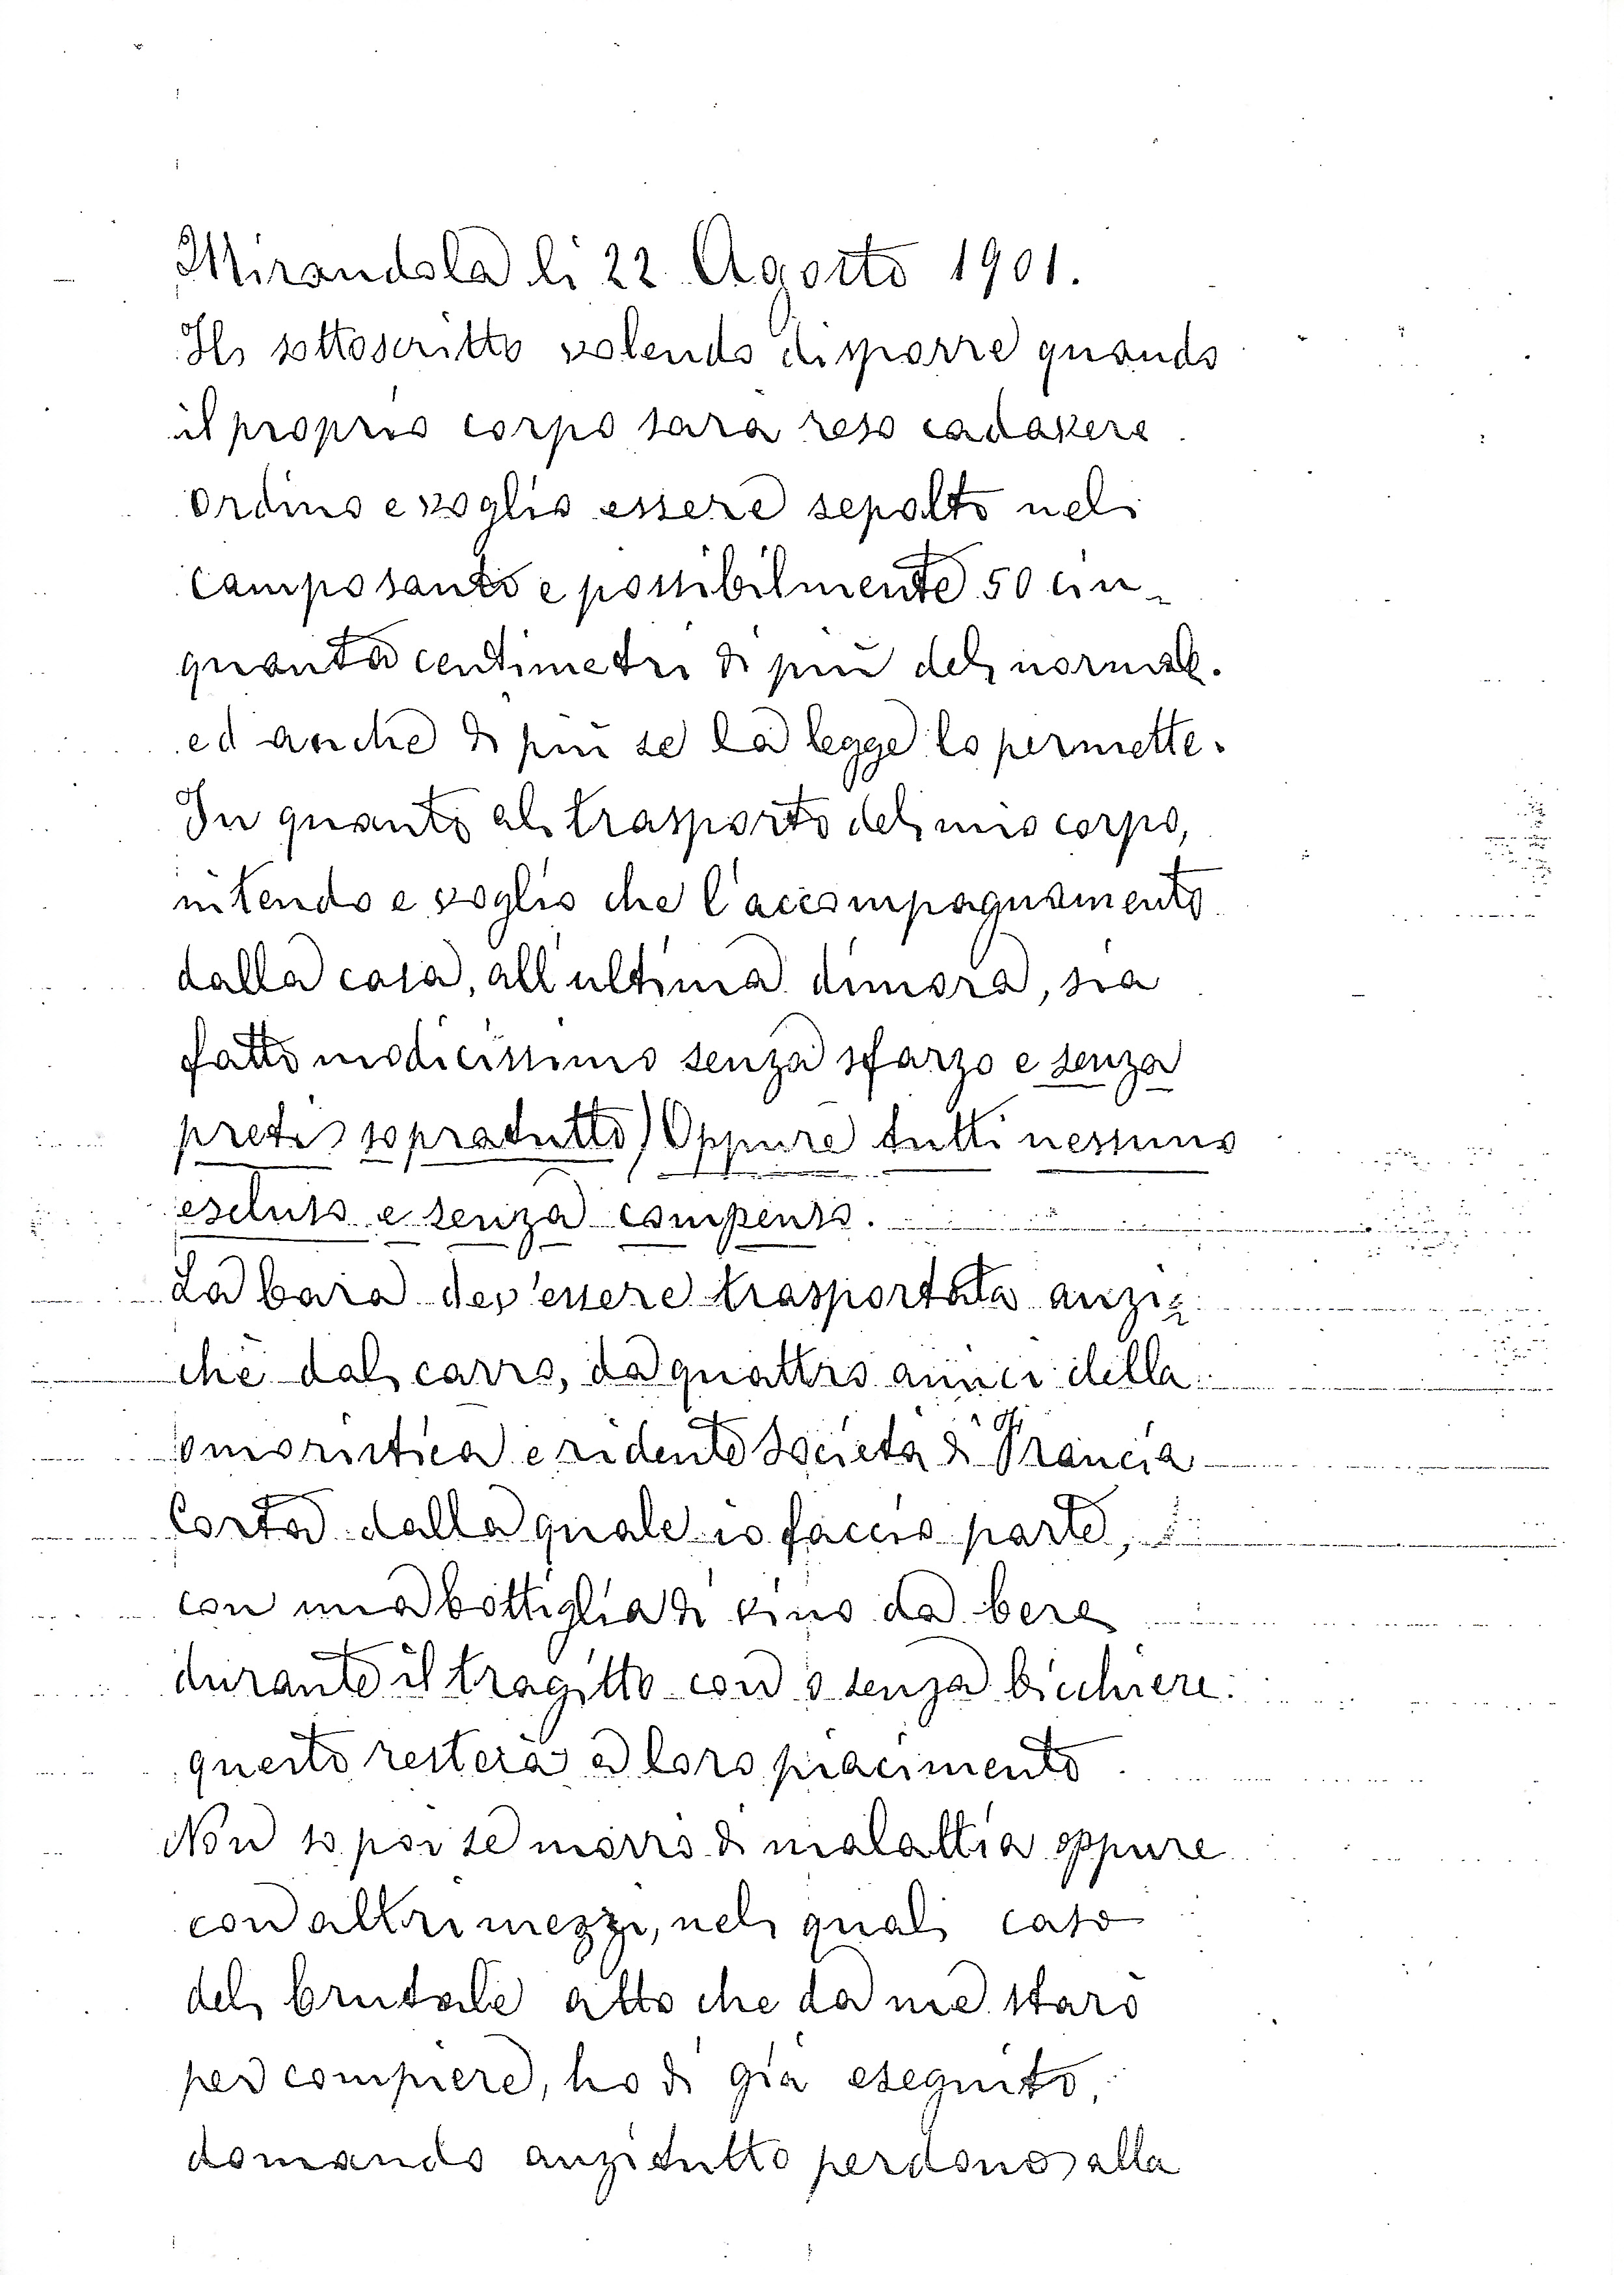 Mirandola li 22 Agosto 1901.
Il sottoscritto volendo disporre quando
il proprio corpo sarà reso cadavere
ordino e voglio essere sepolto nel
camposanto e possibilmente 50 cin=
quanta centimetri di più del normale.
ed anche di più se la legge lo permette.
In quanto al trasporto del mio corpo,
intendo e voglio che l'accompagnamento
dalla casa, all'ultima dimora, sia
fatto modicissimo senza sfarzo e senza
preti sopratutto) Oppure tutti nessuno
escluso e senza compenso.
La bara dev'essere trasportata anzi=
chè dal carro, da quattro amici della
omoristica e ridente Società di Francia
Corta dalla quale io faccio parte,
con una bottiglia di vino da bere
durante il tragitto con o senza bicchiere.
questo resterà a loro piacimento
Non so poi se morrò di malattia oppure
con altri mezzi, nel qual caso
del brutale atto che da me starò
per compiere, ho di già eseguito,
domando anzitutto perdono alla